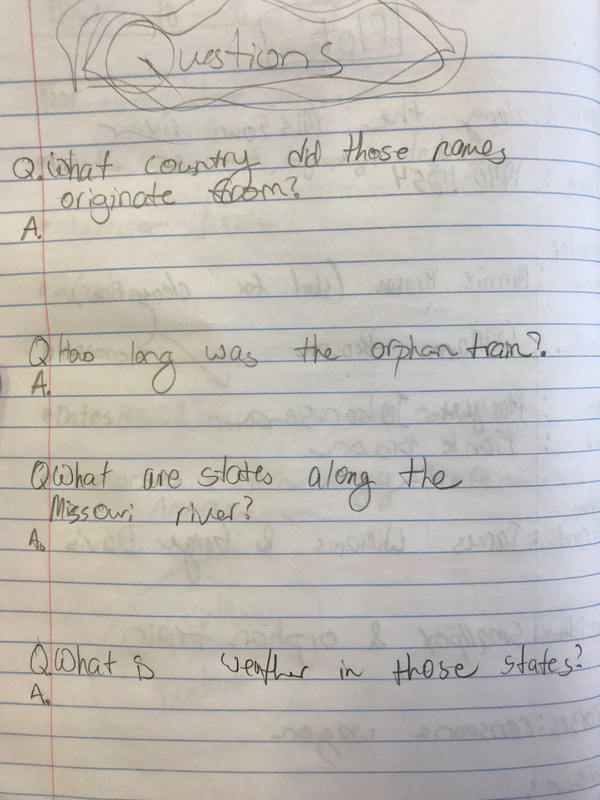 Questions
Q. What country did those names
originate from?
A.
Q How long was the orphan train?
A.
Q What are states along the
Missouri river?
A.
Q. What is weather in those states?
A.